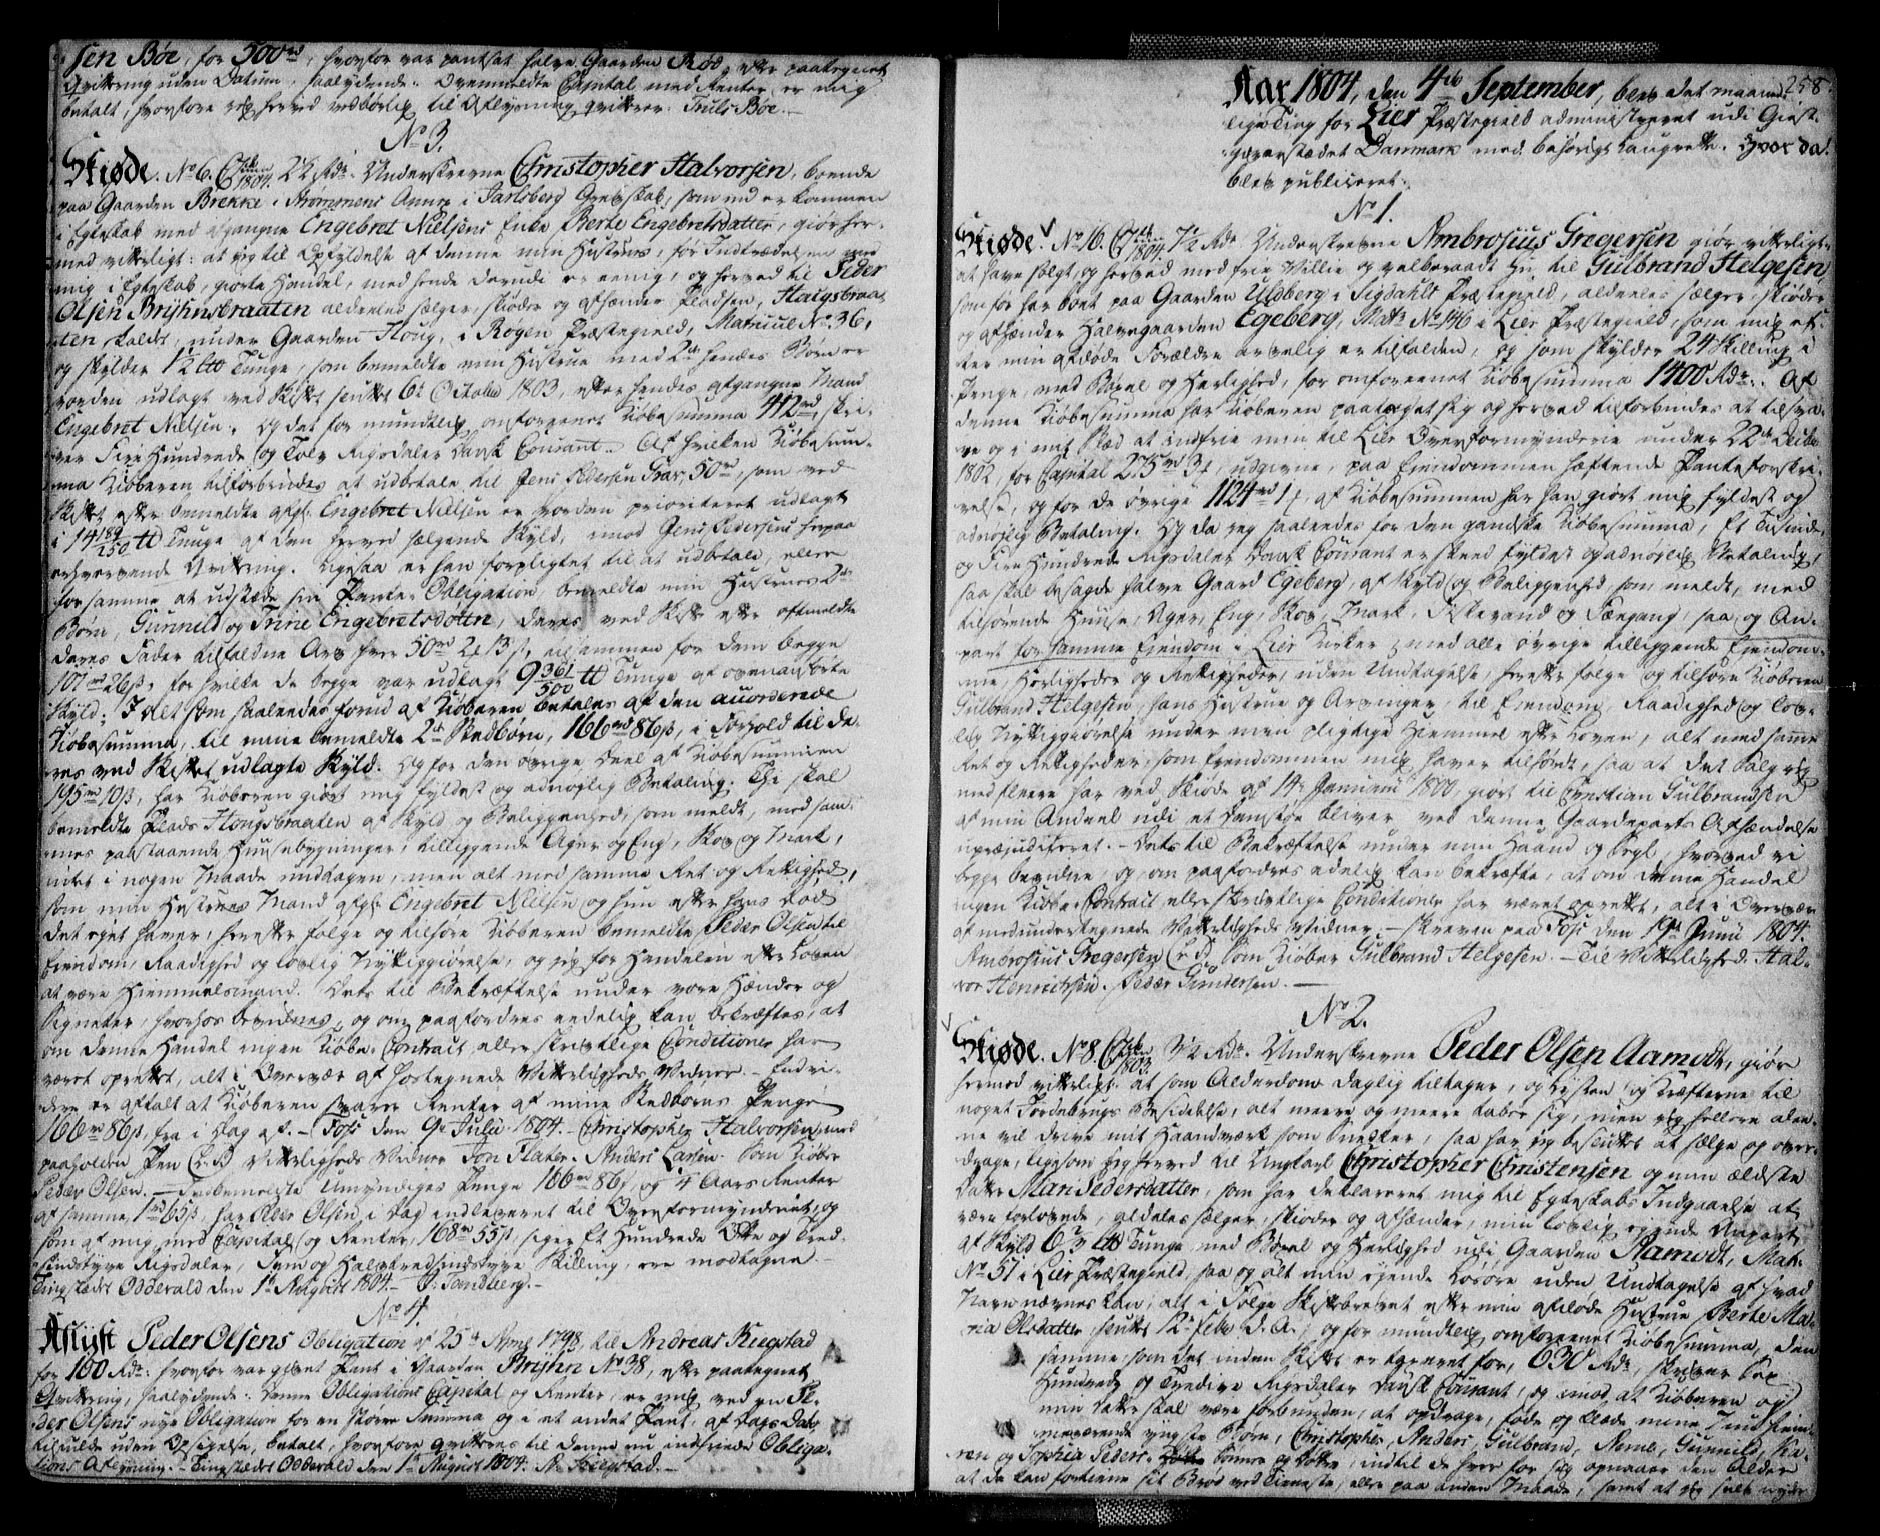 sen Böe, for 500rd, hvorfor var pantsat halve Gaarden Röd, efter paategnet
Qvittering uden Datum, saalydende: Ovenmeldte Capital med Renter er mig
betalt, hvorfore jeg herved vedbørlig til Aflysning qvitterer. Truls Böe.
No 3.
Skiøde. No 6. 1804. 24 Rdr. Underskrevne Christopher Halvorsen, boende
paa Gaarden Brekke i Strømmens Annex i Jarlsberg Grevskab, som nu er kommen
i Egteskab med afgangne Engebret Nielsens Enke Berte Engebretsdatter, giør her-
med vitterligt: at jeg til Opfyldelse af denne min Hustrues, før Indtrædelsen med
mig i Egteskab, giorte Handel, med hende derudi er eenig, og herved til Peder
Olsen Brÿhnsbraaten aldeeles sælger, skiøder og afhænder Pladsen, Haugsbraa-
ten kaldet, under Gaarden Houg, i Rogen Præstegield, Matricul No 36,
og skylder 1½ Lb Tunge, som bemeldte min Hustrue med 2de hendes Børn er
vorden udlagt ved Skiftet sluttet 6te October 1803, efter hendes afgangne Mand
Engebret Nielsen. Og det for mundtlig omforeenet Kiøbesumma 412rd, skri-
ver Fire Hundrede og Tolv Rigsdaler Dansk Courant. Af hvilken Kiøbesum-
ma Kiøberen tilforbindes at udbetale til Jens Pedersen 50rd, som ved
Skiftet efter bemeldte afg: Engebret Nielsen er vorden prioriteret udlagt
i 14 189/250 lb Tunge af den herved sælgende Skyld, imod Jens Pedersens herpaa
erhvervende Qvittering. Ligesaa er han forpligtet til at udbetale, eller
for samme at udstæde sin Pante-Obligation bemeldte min Hustrues 2de
Børn, Gunnild og Trine Engebretsdøttre, deres ved Skifte efter oftmeldte
deres Fader tilfaldne Arv hver 50rd 2 13s, tilsammen for dem begge
101rd 26s, for hvilke de begge var udlagt 9 361/500 lb Tunge af ovenanførte
Skyld; I alt som saaledes forud af Kiøberen betales af den accorderede
Kiøbesumma, til mine bemeldte 2de Stedbørn, 166rd 86s, i Forhold til de-
res ved Skiftet udlagte Skyld. Og for den øvrige Deel af Kiøbesummen
195rd 10s, har Kiøberen giort mig fyldest og adnøjelig Betaling. Thi skal
bemeldte Plads Hougsbraaten af Skyld og Beliggenhed, som meldt, med sam-
mes paastaaende Huusebygninger, tilliggende Ager og Eng, Skov og Mark,
intet i nogen Maade undtagen, men alt med samme Ret og Rettighed,
som min Hustrues Mand afg: Engebret Nielsen og hun efter hans Død
det eget haver, herefter følge og tilhøre Kiøberen bemeldte Peder Olsen til
Eiendom, Raadighed og lovlig Nyttiggiørelse, og jeg for Handelen efter Loven
at være Hiemmelsmand. Dets til Bekræftelse under vore Hænder og
Signeter, hvorhos bevidnes, og om paafordres eedelig kan bekræftes, at
om denne Handel ingen Kiøbe-Contract eller skriftlige Conditioner har
været oprettet, alt i Overvær af hostegnede Vitterligheds Vidner. Endvi-
dere er aftalt at Kiøberen svarer Renter af mine Stedbørns Penge
166rd 86s, fra i Dag af. Foss den 9de Julii 1804. Christopher Halvorsen, med
paaholden Pen (L.S.) Vitterligheds Vidner Jon Flater. Anders Larsen. Som Kiøber
Peder Olsen. Indbemeldte Umyndiges Penge 166rd 86s, og Aars Renter
af samme, 1rd 65s, har Peder Olsen i Dag indleveret til Overformynderiet, og
som af mig, med Capital og Renter, 168rd 55s, siger Et Hundrede Otte og Tred-
sindstyve Rigsdaler, Fem og Halvtredsindstyve Skilling, ere modtagne.
Tingstædet Odderald den 1te August 1804. J: Sandberg.
No 4.
Aflÿst Peder Olsens Obligation af 25de April 1798, til Andreas Kiegstad
for 160 Rdr: hvorfor var givet Pant i Gaarden Brÿhn No 38, efter paategnet
Qvittering, saalydende: Denne Obligations Capital og Renter, er mig ved en Pe-
der Olsens nye Obligation for en større Summa og i et andet Pant, af Dags Dato,
tilfulde uden Opsigelse, betalt, hvorfore qvitteres til denne nu indfriede Obliga-
tions Aflysning. Tingstædet Odderald den 1te August 1804. A. Kiegstad.
258.
Aar 1804, den 4de September, blev det maaned-
lige Ting for Lier Præstegield administreret udi Giest-
giverstædet Danmark med behørige Laugrette. Hvor da
blev publiceret.
No 1.
Skiøde. No 16. 1804. 7½ Rdr Underskrevne Ambrosius Gregersen giør vitterligt
at have solgt, og herved med frie Villie og velberaadt Hu, til Gulbrand Helgesen,
som før har boet paa Gaarden Uldberg i Sigdahls Præstegield, aldeeles sælger, skiøder
og afhænder Halvegaarden Egeberg, Matr: No 146 i Lier Præstegield, som mig ef-
ter min afdøde Forældre arvelig er tilfalden, og som skylder 24 Skilling i
Penge, med Bøxel og Herlighed, for omforeenet Kiøbesumma 1400 Rdr. Af
denne Kiøbesumma har Kiøberen paataget sig og herved tilforbindes at tilsva-
re og i mit Sted at indfrie min til Lier Overformynderie under 22de Decbr
1802, for Capital 275rd 3, udgivne, paa Eiendommen hæftende Panteforskri-
velse, og for de øvrige 1124rd 1, af Kiøbesummen har han giort mig fyldest og
adnøjelig Betaling. Og da jeg saaledes for den gandske Kiøbesumma, Et Tusinde
og Fire Hundrede Rigsdaler Dansk Courant er skeed fyldest og adnøjelig Betaling,
saa skal besagde halve Gaard Egeberg, af Skyld og Beliggenhed som meldt, med
tilhørende Huuse, Ager, Eng, Skov, Mark, Fiskevand og Fægang, saa og An-
part for samme Eiendom i Lier Kirker, med alle øvrige tilliggende Eiendom-
me, Herligheder og Rettigheder, uden Undtagelse, herefter følge og tilhøre Kiøberen
Gulbrand Helgesen, hans Hustrue og Arvinger, til Eiendom, Raadighed og lov-
lig Nyttiggiørelse under min pligtige Hiemmel efter Loven, alt med samme
Ret og Rettigheder, som Eiendommen mig haver tilhørt, saa at det Salg jeg
med fleere har ved Skiøde af 14de Januarii 1800, giort til Christian Gulbrandsen
af min Andeel udi et bliver ved denne Gaardeparts Afhændelse
upræjudiseret. Dets til Bekræftelse under min Haand og Segl, hvorved vi
begge bevidne, og, om paafordres eedelig kan bekræfte, at om denne Handel
ingen Kiøbe-Contract eller skriftlige Conditioner har været oprettet, alt i Overvær
af medundertegnede Vitterligheds Vidner. Skreven paa Foss den 19de Junii 1804.
Ambrosius Gregersen (L.S.) Som Kiøber Gulbrand Helgesen. Til Vitterlighed. Hal-
vor Henrichsen. Peder Gundersen.
No 2.
Skiøde. No 8. 1803. 3½ Rdr. Underskrevne Peder Olsen Aamodt, giøre
hermed vitterligt: at som Alderdom daglig tiltager, og Lysten og Kræfterne til
noget Jordebrugs Besiddelse, alt meere og meere taber sig, men jeg hellere alee-
ne vil drive mit Haandværk som Snedker, saa har jeg besluttet at sælge og over-
drage, ligesom jeg herved til Ungkarl Christopher Christensen og min ældste
Datter Mari Pedersdatter, som har deklareret mig til Egteskabs Indgaaelse at
være forlovede, aldeles sælger, skiøder og afhænder, min lovlig ejende Anpart
af Skyld 6⅓ Lb Tunge med Bøxel og Herlighed udi Gaarden Aamodt, Matr:
No 57 i Lier Præstegield, saa og alt min ejende Løsøre uden Undtagelse af hvad
Navn nævnes kan, alt i Følge Skiftebrevet efter min afdøde Hustrue Berte Ma-
ria Olsdatter, sluttet 12te Febr: d. A., og for mundtlig omforeenet Kiøbesumma, den
samme som det inden Skiftet er taxeret for, 630 Rdr, skriver Sex
Hundrede og Tredive Rigsdaler Dansk Courant, og imod, at Kiøberen og
min Datter skal være forbunden, at opdrage, føde og klæde mine Tvende Hiem-
meværende yngste Børn, Christopher, Anders, Gulbrand, Anne, Gunnild, Ka-
ren og Sophia Peders- Sønner og Døttre, indtil de hver for sig opnaaer den Alder
at de kan fortiene sit Brød ved Tieneste, eller paa anden Maade, samt at jeg selv nyder